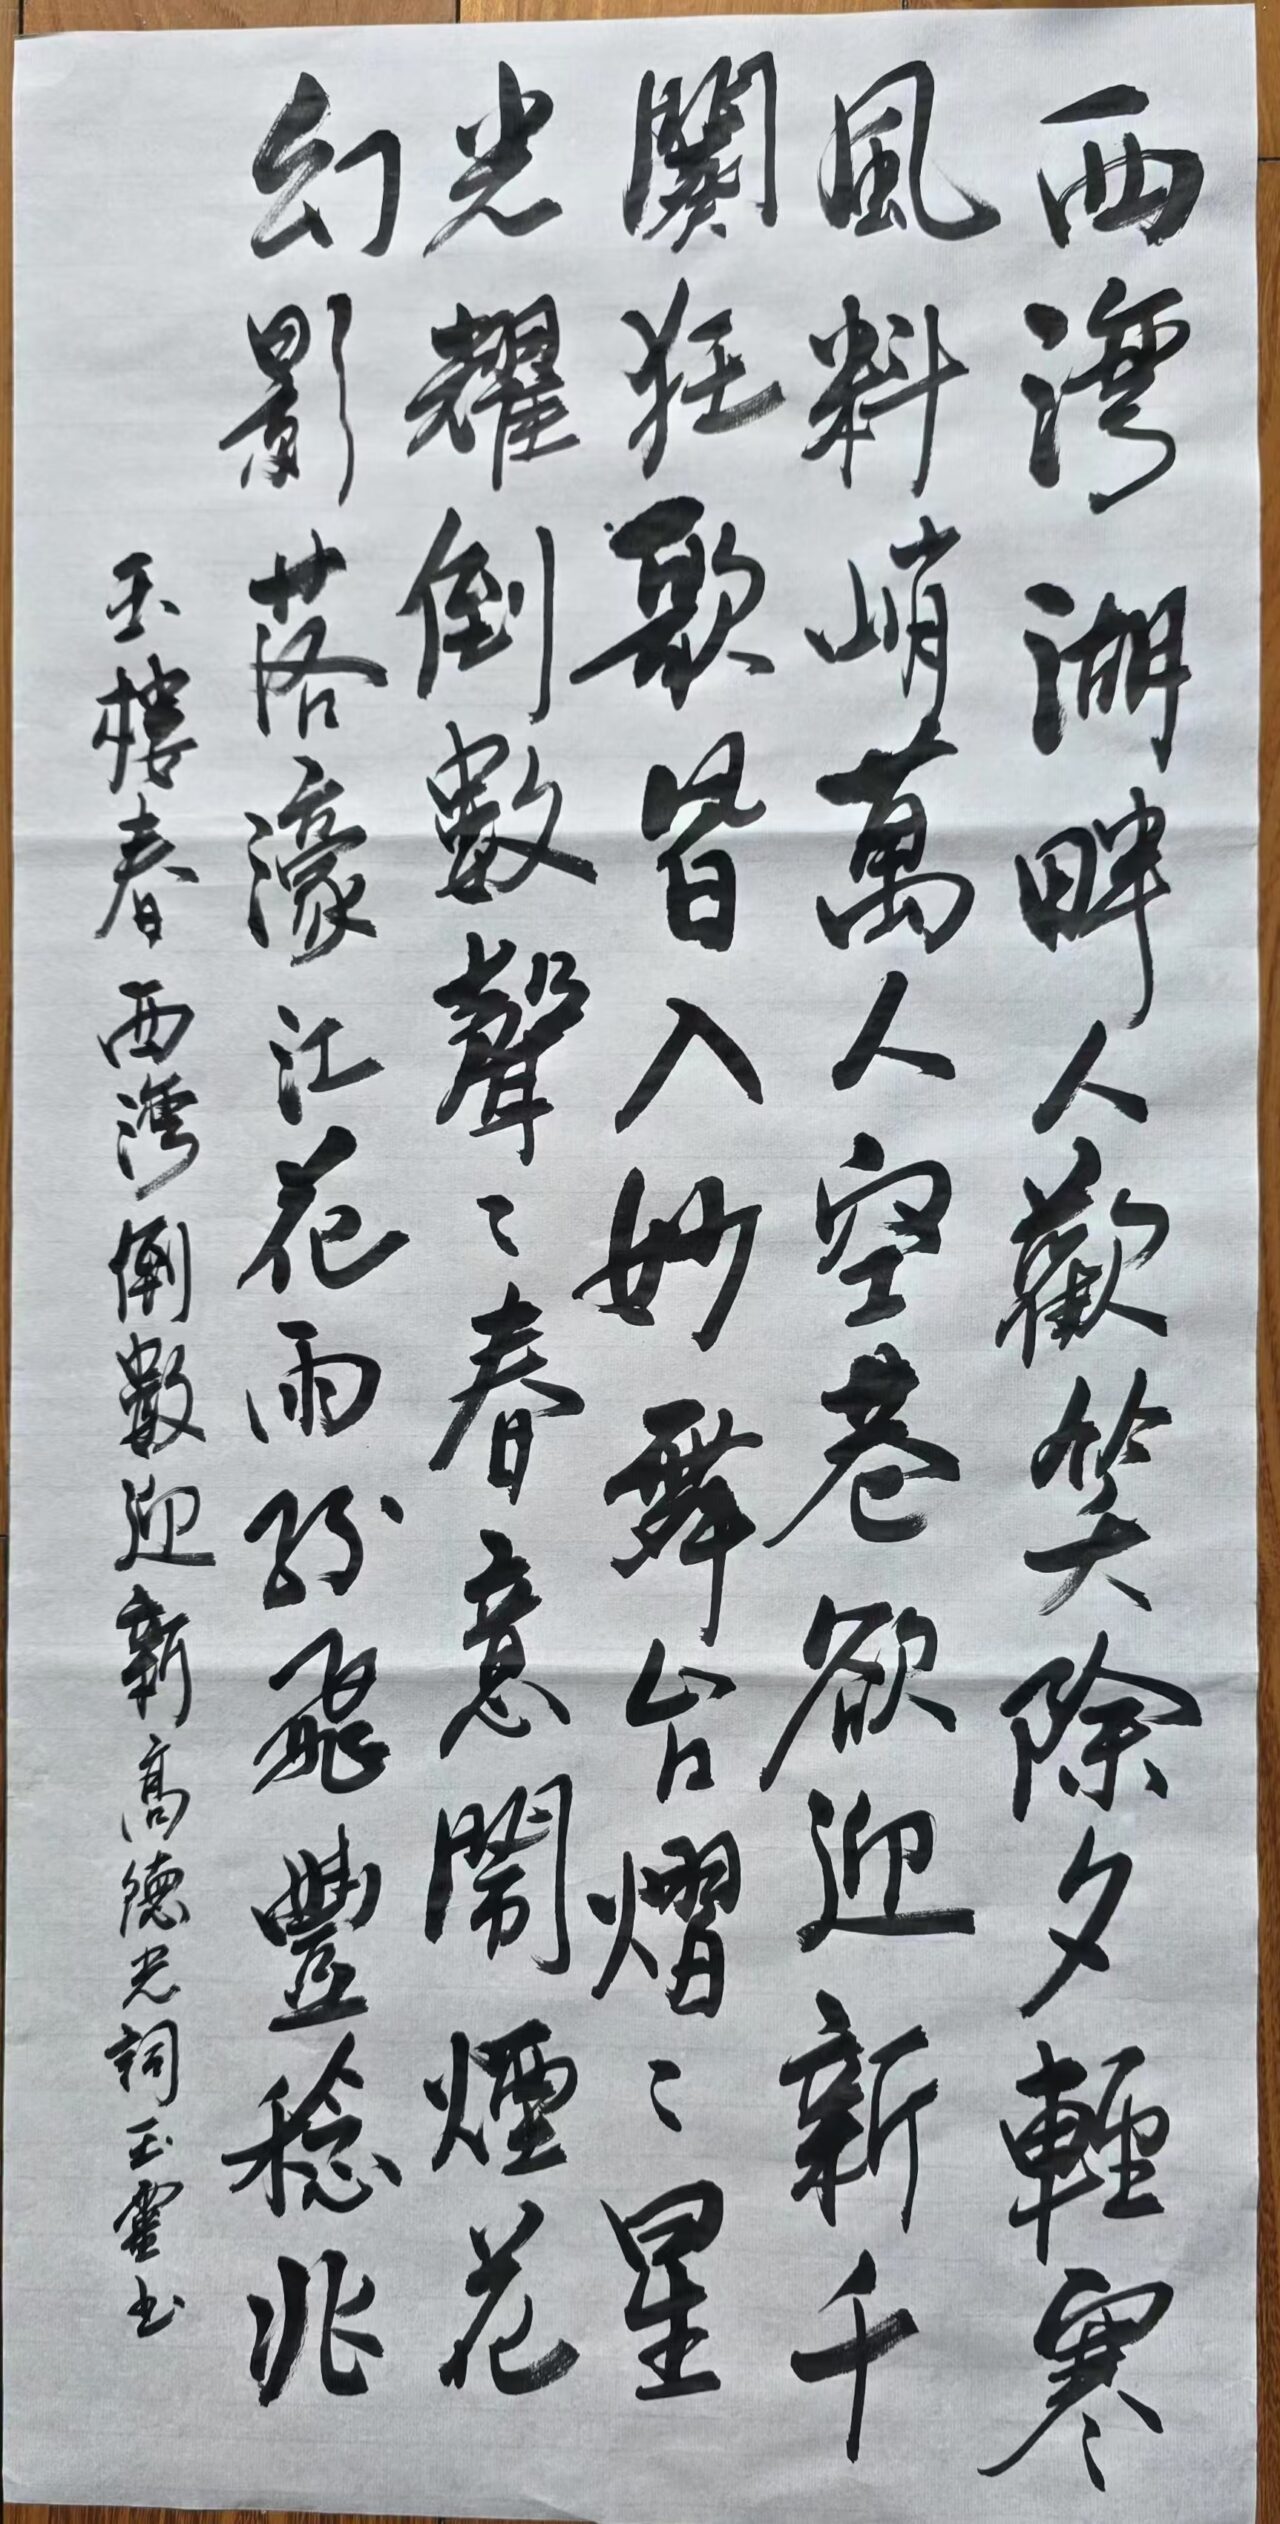 西灣湖畔人歡笑除夕輕寒
風料峭萬人空巷欲迎新千
闋狂歌皆入妙舞台熠〻星
光耀倒數聲〻春意鬧煙花
幻影落濠江花雨紛飛豐稔兆
玉樓春西灣倒數迎新高德光詞玉靈书